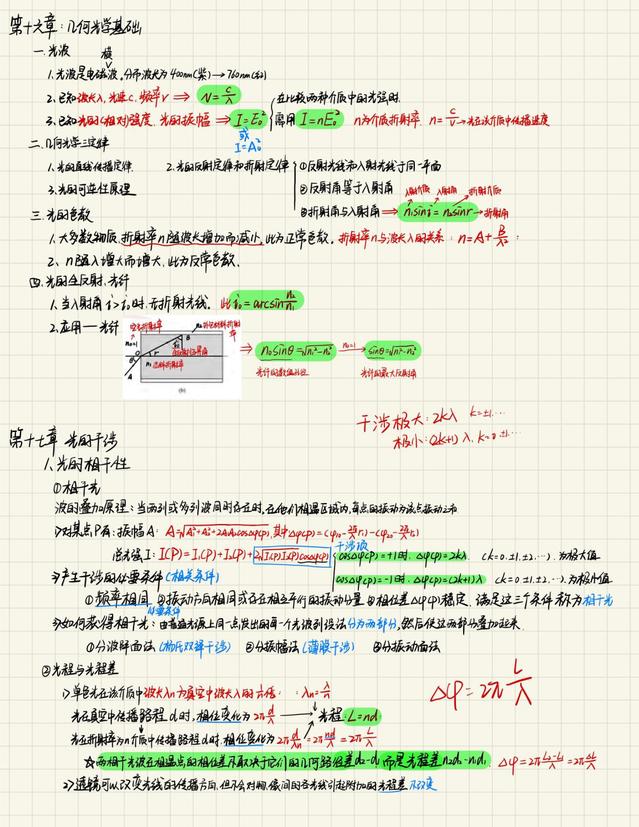 第十六章：几何光学基础
一.光波 横
1.光波是电磁波,分布波长为400nm(紫)→760nm(红)
2.已知波长λ,光速c,频率ν ⇒ N=c/λ
3.已知光的(相对)强度,光的振幅 ⇒ I=E₀² 或 I=A₀² { 在比较两种介质中的光强时, 需用 I=nE₀² n为介质折射率. n=c/v→光在该介质中传播速度
二.几何光学三定律
1.光的直线传播定律 2.光的反射定律和折射定律 { ①反射光线和入射光线于同一平面
3.光的可逆性原理 ②反射角等于入射角 入射介质 入射角 折射介质
③折射角与入射角 ⇒ n₁sini=n₂sinr→折射角
三.光的色散
1.大多数物质,折射率n随波长增加而减小,此为正常色散. 折射率n与波长λ的关系:n=A+B/λ²;
2.n随λ增大而增大,此为反常色散.
四.光的全反射.光纤
1.当入射角i>i₀时,无折射光线. 此i₀=arcsin n₂/n₁
2.应用—光纤 ⇒ n₀sinθ=√n₁²-n₂² n₀=1→ sinθ=√n₁²-n₂²
光纤的数值孔径 光纤的最大反射角
n₀=1
(b)
干涉极大:2kλ k=±1,…
极小:(2k+1)λ,k=0,±1…
第十七章 光的干涉
1.光的相干性
①相干光
波的叠加原理:当两列或多列波同时存在时,在他们相遇区域内,每点的振动为各点振动之和
1)对某点P有:振幅A: A=√A₁²+A₂²+2A₁A₂cosΔφ(P),其中Δφ(P)=(φ₁₀-2π/λ r₁)-(φ₂₀-2π/λ r₂)
干涉项
总光强I:I(P)=I₁(P)+I₂(P)+2√I₁(P)I₂(P)cosΔφ(P) { cosΔφ(P)=+1时,Δφ(P)=2kλ (k=0.±1.±2,…).为极大值
2)产生干涉的必要条件(相关条件) cosΔφ(P)=-1时,Δφ(P)=(2k+1)λ (k=0.±1.±2,…).为极小值
①频率相同 ②振动方向相同或存在相互平行的振动分量 ③相位差Δφ(P)稳定. 满足这三个条件称为相干光
必要条件
3)如何获得相干光:由普通光源上同一点发出的每一个光波列设法分为两部分,然后使这两部分叠加起来.
①分波阵面法(杨氏双缝干涉) ②分振幅法(薄膜干涉) ③分振动面法
②光程与光程差
1)单色光在该介质中波长λn为真空中波长λ的1/n倍: ∴λn=λ/n
光在真空中传播路程d时,相位变化为2π d/λ → 光程:L=nd
光在折射率为n介质中传播路程d时,相位变化为2π d/λn=2π nd/λ=2π L/λ
Δφ=2π L/λ
☆两相干光波在相遇点的相位差不取决于它们的几何路径差d₂-d₁而是光程差n₂d₂-n₁d₁. Δφ=2π L₂-L₁/λ=2π ΔL/λ
2)透镜可以改变光线的传播方向,但不会对物、像间的各光线引起附加的光程差 不改变